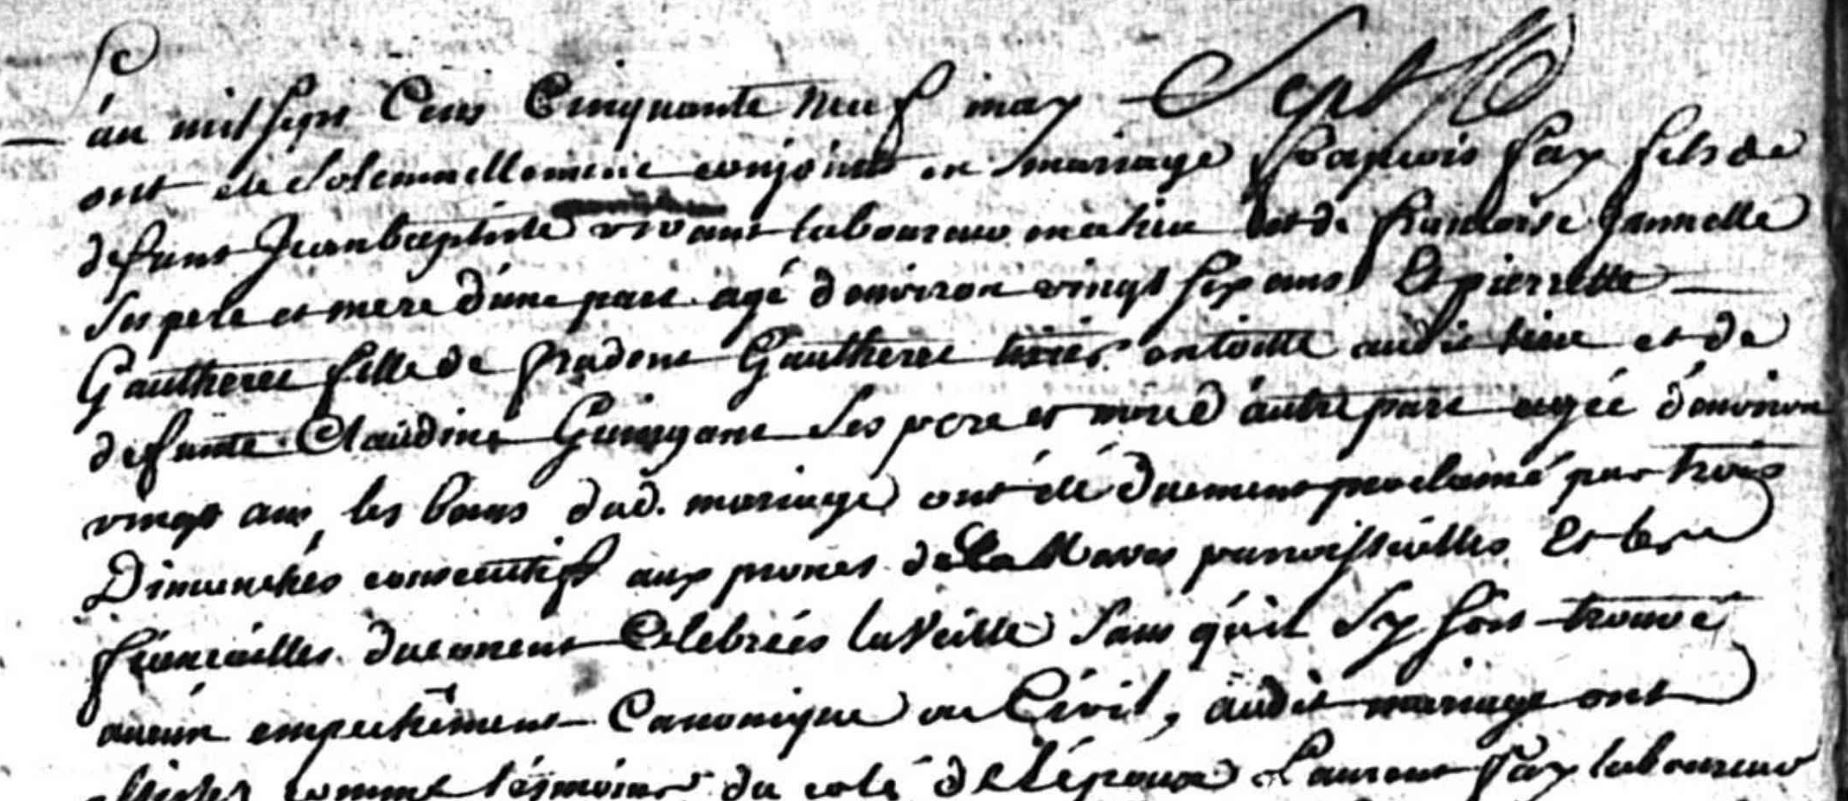 L'an mil sept cens cinquante neuf may Sept
ont été solemnellement conjoint en mariage françois fay fils de
defunt Jeanbaptiste vivant laboureur et de françoise Jannelle
ses pere et mere d'une part agé d'environ vingt six ans Et pierrette
Gautheret fille de Gautheret audit lieu et de
defunte Claudine ses pere et mere d'autre part agée d'environ
vingt ans, les bans dud. mariage ont été duement proclamé par trois
Dimanches consecutifs aux prones de La Messes paroissialles Et les
fiançailles duement Celebrées la Veille sans qu'il s'y soit trouvé
aucun empechement Canonique ou Civil, audit mariage ont
comme témoins du coté de l'époux Laurent fay laboureur